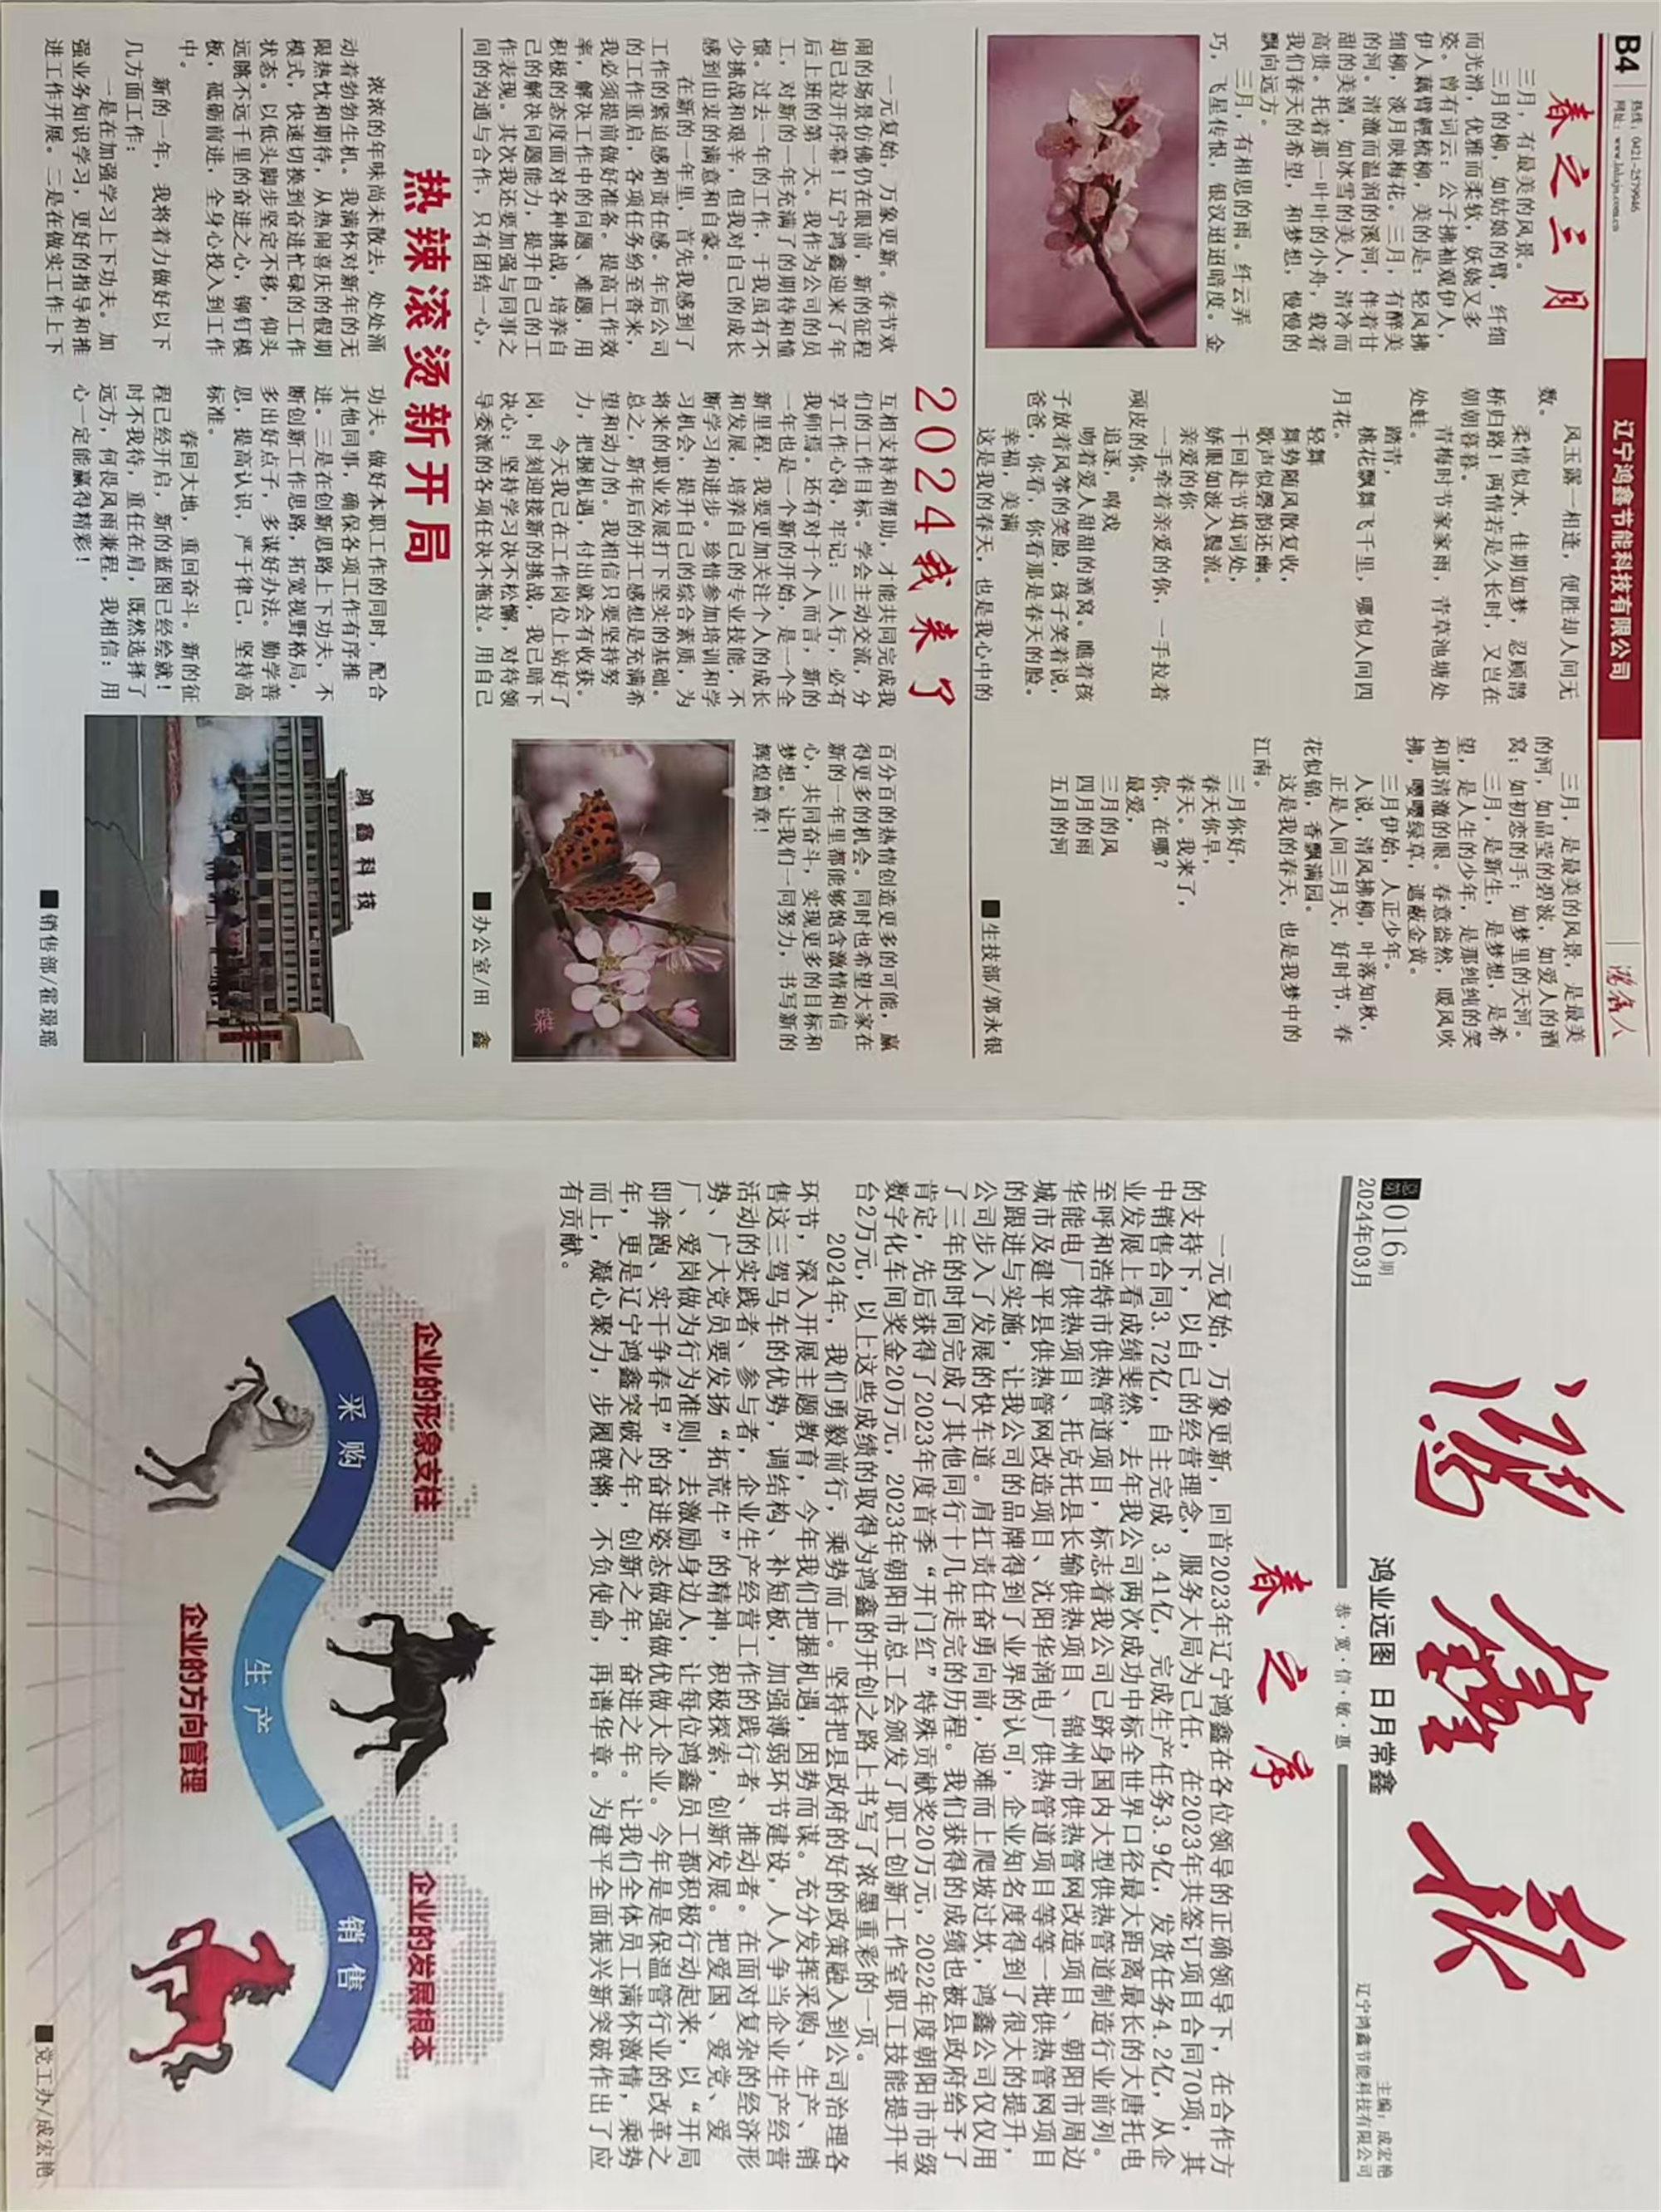 B4
热线：0421-2579946
网址：www.lnhxjn.com.cn
辽宁鸿鑫节能科技有限公司
鸿鑫人
春之三月
三月，有最美的风景。
三月的柳，如姑娘的臂，纤细
而光滑，优雅而柔软，妖娆又多
姿。曾有词云：公子拂袖观伊人，
伊人藕臂轻梳柳，美的是：轻风拂
细柳，淡月映梅花。三月，有醉美
的河。清澈而温润的溪河，伴着甘
甜的美酒，如冰雪的美人，清冷而
高贵。托着那一叶叶的小舟，载着
我们春天的希望，和梦想，慢慢的
飘向远方。
三月，有相思的雨。纤云弄
巧，飞星传恨，银汉迢迢暗度。金
风玉露一相逢，便胜却人间无
数。
柔情似水，佳期如梦，忍顾鹊
桥归路！两情若是久长时，又岂在
朝朝暮暮。
青梅时节家家雨，青草池塘处
处蛙。
踏青，
桃花飘舞飞千里，哪似人间四
月花。
轻舞
舞势随风散复收，
歌声似磬韵还幽。
千回赴节填词处，
娇眼如波入鬓流。
亲爱的你
一手牵着亲爱的你，一手拉着
顽皮的你。
追逐，嘻戏
吻着爱人甜甜的酒窝。瞧着孩
子放着风筝的笑脸，孩子笑着说，
爸爸，你看，你看那是春天的脸。
幸福，美满
这是我的春天，也是我心中的
三月，是最美的风景，是最美
的河，如晶莹的碧波，如爱人的酒
窝；如初恋的手；如梦里的天河。
三月，是新生，是梦想，是希
望，是人生的少年，是那纯纯的笑
和那清澈的眼。春意盎然，暖风吹
拂，嘤嘤绿草，遮蔽金黄。
三月伊始，人正少年。
人说，清风拂柳，叶落知秋，
正是人间三月天，好时节，春
花似锦，香飘满园。
这是我的春天，也是我梦中的
江南。
三月你好，
春天你早，
春天。我来了，
你，在哪？
最爱，
三月的风
四月的雨
五月的河
■生技部/郭永银
2024我来了
一元复始，万象更新。春节欢
闹的场景仿佛仍在眼前，新的征程
却已拉开序幕！辽宁鸿鑫迎来了年
后上班的第一天。我作为公司的员
工，对新的一年充满了的期待和憧
憬。过去一年的工作，于我虽有不
少挑战和艰辛，但我对自己的成长
感到由衷的满意和自豪。
在新的一年里，首先我感到了
工作的紧迫感和责任感。年后公司
的工作重启，各项任务纷至沓来，
我必须提前做好准备。提高工作效
率，解决工作中的问题、难题，用
积极的态度面对各种挑战，培养自
己的解决问题能力，提升自己的工
作表现。其次我还要加强与同事之
间的沟通与合作，只有团结一心，
互相支持和帮助，才能共同完成我
们的工作目标。学会主动交流，分
享工作心得，牢记：三人行，必有
我师焉。还有对于个人而言，新的
一年也是一个新的开始，是一个全
新里程，我要更加关注个人的成长
和发展，培养自己的专业技能，不
断学习和进步。珍惜参加培训和学
习机会，提升自己的综合素质，为
将来的职业发展打下坚实的基础。
总之，新年后的开工感想是充满希
望和动力的。我相信只要坚持努
力，把握机遇，付出就会有收获。
今天我已在工作岗位上站好了
岗，时刻迎接新的挑战，我已暗下
决心：坚持学习决不松懈，对待领
导委派的各项任决不拖拉。用自己
百分百的热情创造更多的可能，赢
得更多的机会。同时也希望大家在
新的一年里都能够饱含激情和信
心，共同奋斗，实现更多的目标和
梦想。让我们一同努力，书写新的
辉煌篇章！
蝶
■办公室/田 鑫
热辣滚烫新开局
浓浓的年味尚未散去，处处涌
动着勃勃生机。我满怀对新年的无
限热忱和期待，从热闹喜庆的假期
模式，快速切换到奋进忙碌的工作
状态。以低头脚步坚定不移，仰头
远眺不远千里的奋进之心，铆钉模
板，砥砺前进，全身心投入到工作
中。
新的一年，我将着力做好以下
几方面工作：
一是在加强学习上下功夫。加
强业务知识学习，更好的指导和推
进工作开展。二是在做实工作上下
功夫。做好本职工作的同时，配合
其他同事，确保各项工作有序推
进。三是在创新思路上下功夫，不
断创新工作思路，拓宽视野格局，
多出好点子，多谋好办法。勤学善
思，提高认识，严于律己，坚持高
标准。
春回大地，重回奋斗。新的征
程已经开启，新的蓝图已经绘就！
时不我待，重任在肩，既然选择了
远方，何畏风雨兼程，我相信：用
心一定能赢得精彩！
鸿鑫科技
■销售部/霍璟瑶
总第016期
2024年03月
鸿鑫报
鸿业远图 日月常鑫
恭·宽·信·敏·惠
主编：成宏艳
辽宁鸿鑫节能科技有限公司
春之序
一元复始，万象更新，回首2023年辽宁鸿鑫在各位领导的正确领导下，在合作方
的支持下，以自己的经营理念，服务大局为己任，在2023年共签订项目合同70项，其
中销售合同3.72亿，自主完成 3.41亿，完成生产任务3.9亿，发货任务4.2亿，从企
业发展上看成绩斐然，去年我公司两次成功中标全世界口径最大距离最长的大唐托电
至呼和浩特市供热管道项目，标志着我公司已跻身国内大型供热管道制造行业前列。
华能电厂供热项目、托克托县长输供热项目、锦州市供热管网改造项目、朝阳市周边
城市及建平县供热管网改造项目、沈阳华润电厂供热管道项目等等一批供热管网项目
的跟进与实施，让我公司的品牌得到了业界的认可，企业知名度得到了很大的提升，
公司步入了发展的快车道。肩扛责任奋勇向前，迎难而上爬坡过坎，鸿鑫公司仅仅用
了三年的时间完成了其他同行十几年走完的历程。我们获得的成绩也被县政府给予了
肯定，先后获得了2023年度首季“开门红”特殊贡献奖20万元，2022年度朝阳市市级
数字化车间奖金20万元，2023年朝阳市总工会颁发了职工创新工作室职工技能提升平
台2万元，以上这些成绩的取得为鸿鑫的开创之路上书写了浓墨重彩的一页。
2024年，我们勇毅前行，乘势而上。坚持把县政府的好的政策融入到公司治理各
环节，深入开展主题教育，今年我们把握机遇，因势而谋。充分发挥采购、生产、销
售这三驾马车的优势，调结构、补短板，加强薄弱环节建设，人人争当企业生产经营
活动的实践者、参与者，企业生产经营工作的践行者、推动者。在面对复杂的经济形
势、广大党员要发扬“拓荒牛”的精神，积极探索，创新发展。把爱国、爱党、爱
厂、爱岗做为行为准则，去激励身边人，让每位鸿鑫员工都积极行动起来，以“开局
即奔跑、实干争春早”的奋进姿态做强做优做大企业。今年是是保温管行业的改革之
年，更是辽宁鸿鑫突破之年，创新之年，奋进之年。让我们全体员工满怀激情，乘势
而上，凝心聚力，步履铿锵，不负使命，再谱华章。为建平全面振兴新突破作出了应
有贡献。
企业的形象支柱
采购
生产
企业的方向管理
企业的发展根本
销售
■党工办/成宏艳